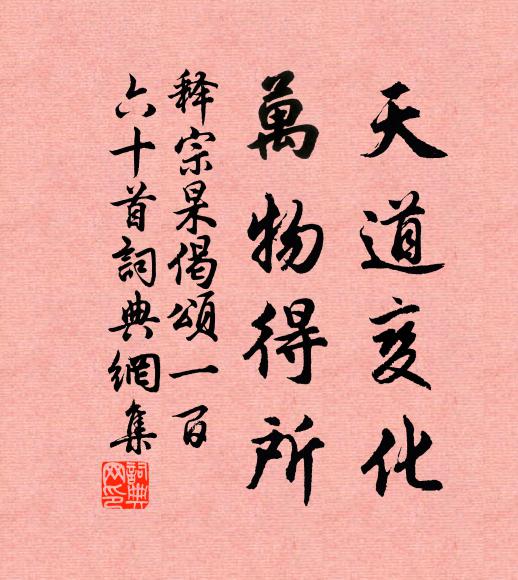 天道变化
萬物得所
释宗杲偈頌一百
六十首詞典網集
詞典
网印